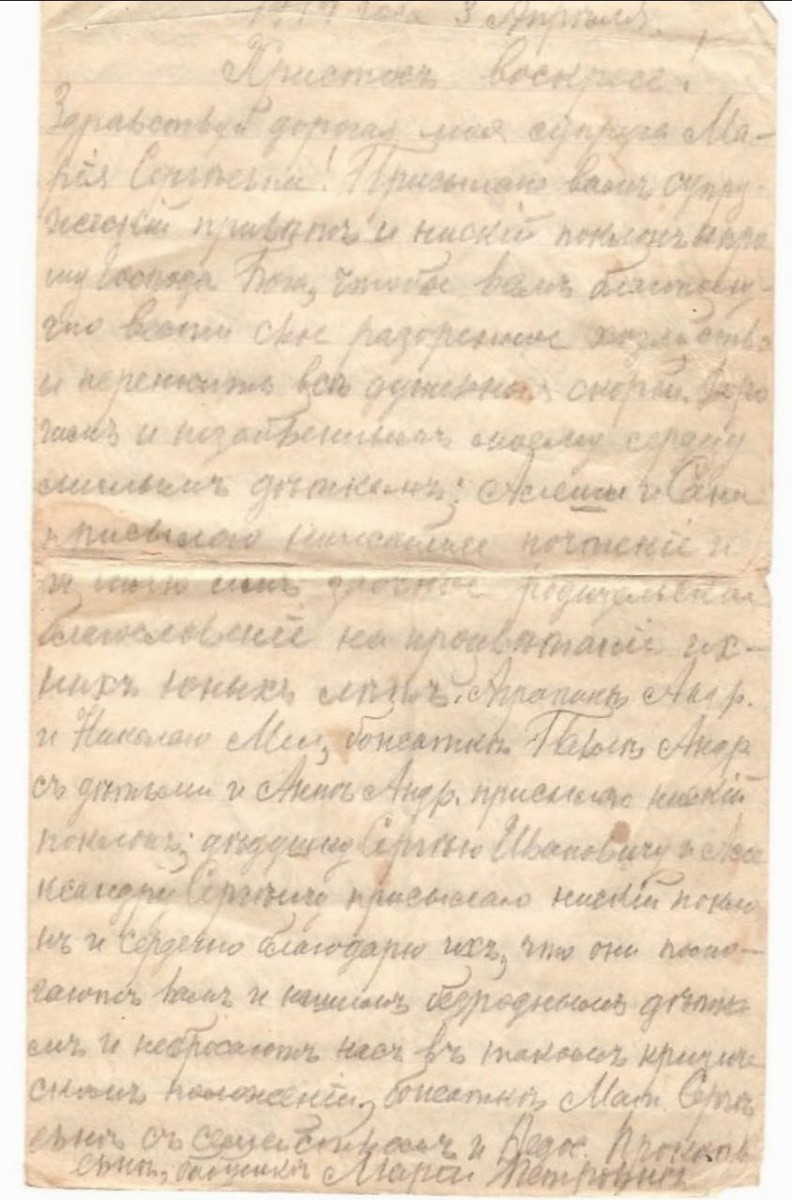 3 Апрѣля.
Христосъ воскресе!
Здравствуй дорогая моя супруга Ма-
рія Сергѣевна! Присылаю вамъ супру-
жескій привѣтъ и нискій поклонъ и про
шу Господа Бога, чтобы вамъ благополу-
чно вести свое разоренное хозяйство
и пережить всѣ душевныя скорби. Доро
гимъ и незабвеннымъ моему сердцу
милымъ дѣткамъ: и Сани
присылаю почтеніе и
имъ заочное родительское
благословеніе на процвѣтаніе ихъ-
нихъ юныхъ лѣтъ. Андр.
и Николаю божаткѣ Андр
съ дѣтьми и Аннѣ Андр. присылаю нискій
поклонъ; дѣдушку Сергѣю Ивановичу и Але
ксандрѣ присылаю нискій покло
нъ и сердечно благодарю ихъ, что они помо-
гаютъ вамъ и нашимъ безроднымъ дѣтка
мъ и небросаютъ насъ въ такомъ критиче
скомъ положеніи, божаткѣ Мат. Сергѣ
евнѣ съ семействомъ и Ѳедос. Прокопь
евнѣ, Маріи Петровнѣ